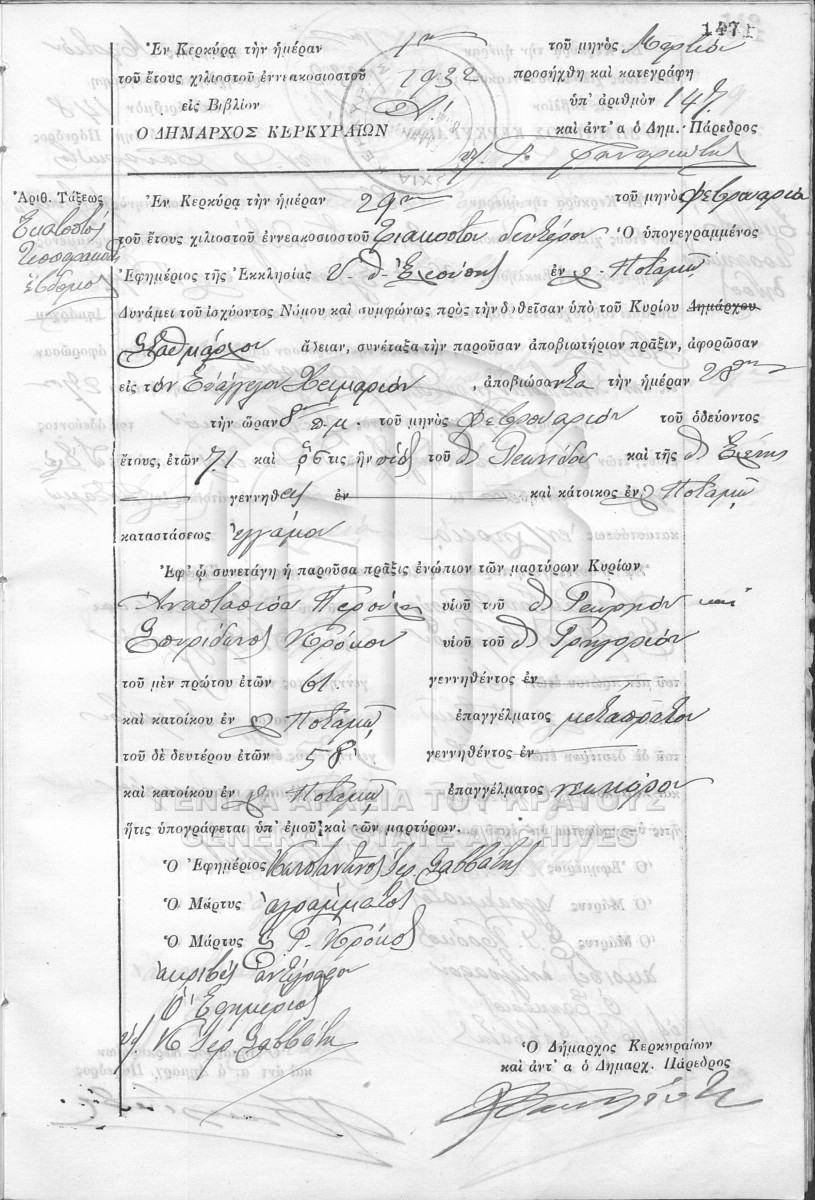 147
Ἐν Κερκύρᾳ τὴν ἡμέραν 1ην τοῦ μηνὸς Μαρτίου
τοῦ ἔτους χιλιοστοῦ ἐννεακοσιοστοῦ 1932 προσήχθη καὶ κατεγράφη
εἰς Βιβλίον Α! ὑπ' ἀριθμὸν 147.
Ο ΔΗΜΑΡΧΟΣ ΚΕΡΚΥΡΑΙΩΝ καὶ ἀντ' α ὁ Δημ. Πάρεδρος
Ἀριθ. Τάξεως
Ἑκατοστὸς
Τεσσαρακοστὸς
ἕβδομος
Ἐν Κερκύρᾳ τὴν ἡμέραν 29ην τοῦ μηνὸς Φεβρουαρίου
τοῦ ἔτους χιλιοστοῦ ἐννεακοσιοστοῦ τριακοστοῦ δευτέρου Ὁ ὑπογεγραμμένος
Ἐφημέριος τῆς Ἐκκλησίας Υ. Θ. Ἐλεούσης ἐν Ποταμῷ
Δυνάμει τοῦ ἰσχύοντος Νόμου καὶ συμφώνως πρὸς τὴν δοθεῖσαν ὑπὸ τοῦ Κυρίου Δημάρχου
Σταθμάρχου ἄδειαν, συνέταξα τὴν παροῦσαν ἀποβιωτήριον πρᾶξιν, ἀφορῶσαν
εἰς τὸν Εὐάγγελον Χειμαριόν, ἀποβιώσαντα τὴν ἡμέραν 28ην
τὴν ὥραν 8 π.μ. τοῦ μηνὸς Φεβρουαρίου τοῦ ὁδεύοντος
ἔτους, ἐτῶν 71 καὶ ὅστις ἦν υἱὸς τοῦ Λεωνίδου καὶ τῆς Ἑλένης
γεννηθεὶς ἐν καὶ κάτοικος ἐν Ποταμῷ
καταστάσεως ἐγγάμου
Ἐφ' ᾧ συνετάγη ἡ παροῦσα πρᾶξις ἐνώπιον τῶν μαρτύρων Κυρίων
Ἀναστασίου υἱοῦ τοῦ Γεωργίου καὶ
Σπυρίδωνος Κρόκου υἱοῦ τοῦ Γρηγορίου
τοῦ μὲν πρώτου ἐτῶν 61 γεννηθέντος ἐν
καὶ κατοίκου ἐν Ποταμῷ ἐπαγγέλματος μεταπράτου
τοῦ δὲ δευτέρου ἐτῶν 58 γεννηθέντος ἐν
καὶ κατοίκου ἐν Ποταμῷ ἐπαγγέλματος νεωκόρου
ΓΕΝΙΚΑ ΑΡΧΕΙΑ ΤΟΥ ΚΡΑΤΟΥΣ
ἥτις ὑπογράφεται ὑπ' ἐμοῦ καὶ τῶν μαρτύρων.
GENERAL STATE ARCHIVES
Ὁ Ἐφημέριος Κωσταντῖνος Ἱερ. Σαββάτης
Ὁ Μάρτυς ἀγράμματος
Ὁ Μάρτυς Σ. Γ. Κρόκος
ἀκριβὲς ἀντίγραφον
Ὁ Ἐφημέριος
Κ Ἱερ. Σαββάτης
Ὁ Δήμαρχος Κερκυραίων
καὶ ἀντ' α ὁ Δημαρχ. Πάρεδρος